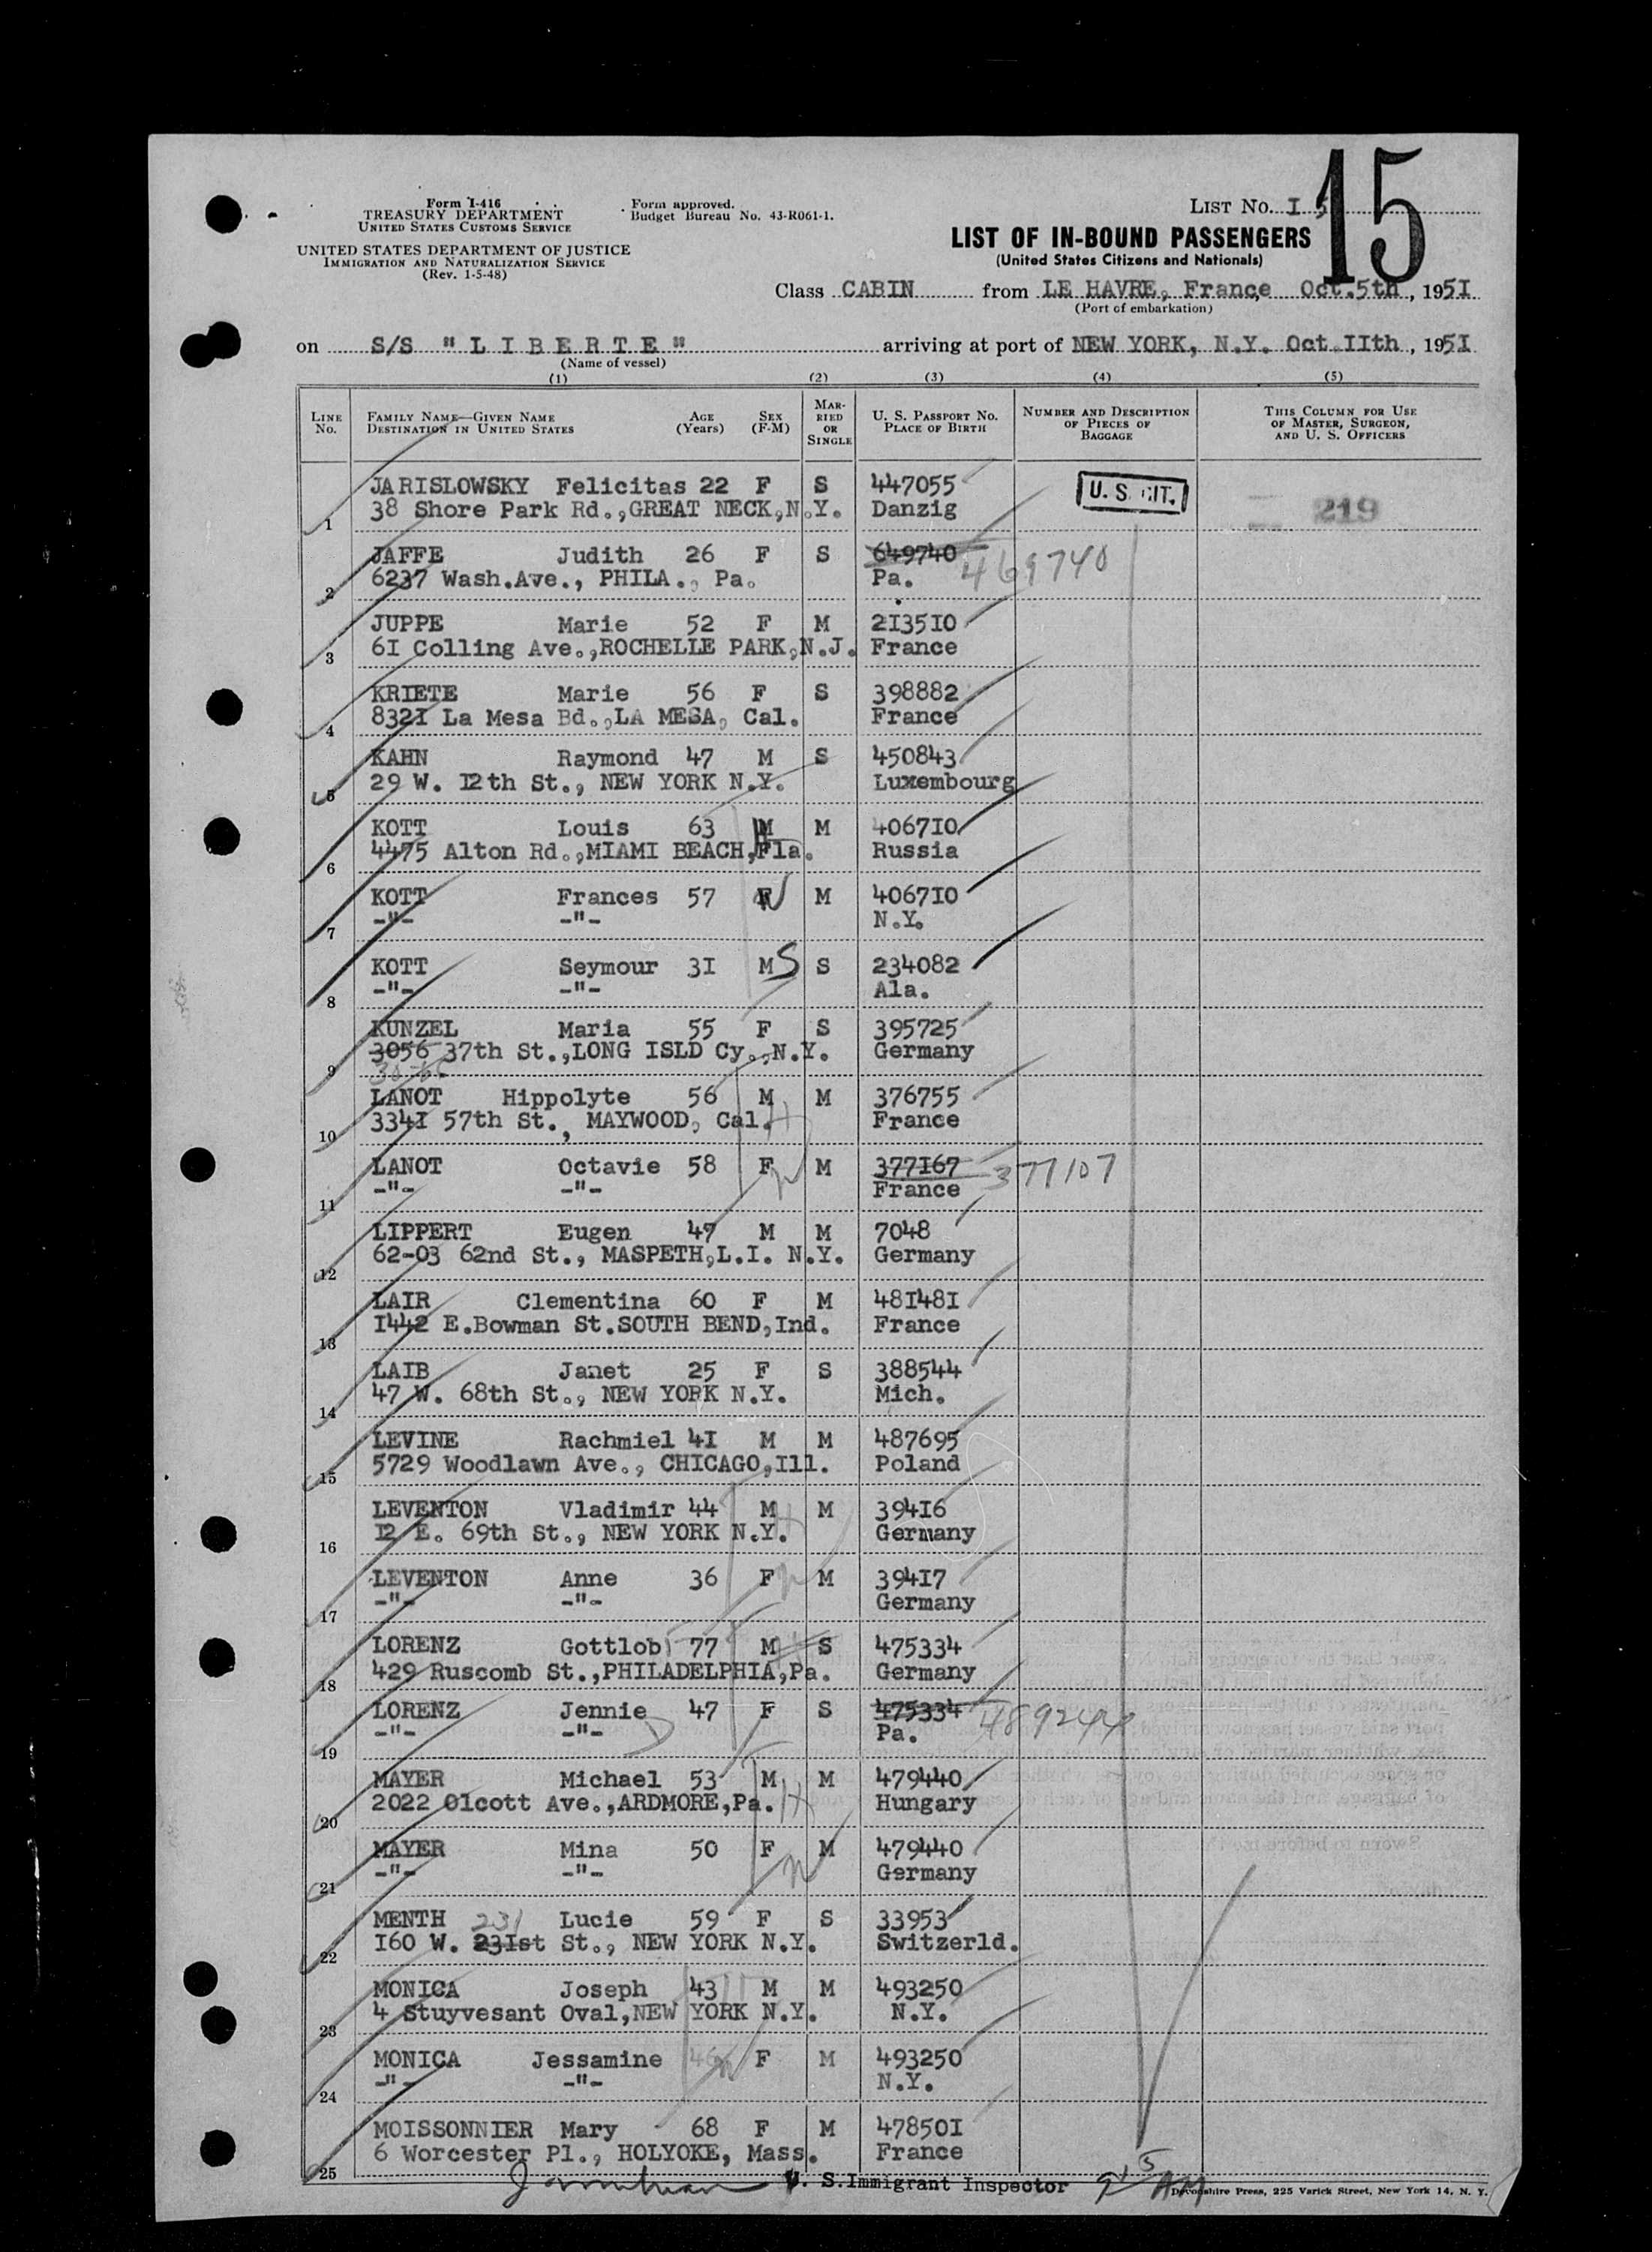 Form I-416
TREASURY DEPARTMENT
UNITED STATES CUSTOMS SERVICE
UNITED STATES DEPARTMENT OF JUSTICE
IMMIGRATION AND NATURALIZATION SERVICE
(Rev. 1-5-48)
Form approved.
Budget Bureau No. 43-R061-1.
LIST NO. I 5
15
LIST OF IN-BOUND PASSENGERS
(United States Citizens and Nationals)
Class CABIN from LE HAVRE, France Oct.5th, 195I
(Port of embarkation)
on S/S "LIBERTE" arriving at port of NEW YORK, N.Y. Oct IIth, 195I
(Name of vessel)
(1) (2) (3) (4) (5)
LINE NO. FAMILY NAME—GIVEN NAME DESTINATION IN UNITED STATES AGE (Years) SEX (F-M) MARRIED OR SINGLE U. S. PASSPORT NO. PLACE OF BIRTH NUMBER AND DESCRIPTION OF PIECES OF BAGGAGE THIS COLUMN FOR USE OF MASTER, SURGEON, AND U. S. OFFICERS
JARISLOWSKY Felicitas 22 F S 447055 U. S. CIT.
1 38 Shore Park Rd.,GREAT NECK,N.Y. Danzig 219
JAFFE Judith 26 F S 649740 469740
2 6237 Wash.Ave., PHILA., Pa. Pa.
JUPPE Marie 52 F M 2I35I0
3 6I Colling Ave.,ROCHELLE PARK,N.J. France
KRIETE Marie 56 F S 398882
4 832I La Mesa Bd.,LA MESA, Cal. France
KAHN Raymond 47 M S 450843
5 29 W. I2th St., NEW YORK N.Y. Luxembourg
KOTT Louis 63 M M 4067I0
6 4475 Alton Rd.,MIAMI BEACH,Fla. Russia
KOTT Frances 57 F M 4067I0
7 -"- -"- N.Y.
KOTT Seymour 3I M S S 234082
8 -"- -"- Ala.
KUNZEL Maria 55 F S 395725
9 3056 37th St.,LONG ISLD Cy.,N.Y. Germany
LANOT Hippolyte 56 M H M 376755
10 334I 57th St., MAYWOOD, Cal. France
LANOT Octavie 58 F W M 377I67 377107
11 -"- -"- France
LIPPERT Eugen 47 M M 7048
12 62-03 62nd St., MASPETH,L.I. N.Y. Germany
LAIR Clementina 60 F M 48I48I
13 I442 E.Bowman St.SOUTH BEND,Ind. France
LAIB Janet 25 F S 388544
14 47 W. 68th St., NEW YORK N.Y. Mich.
LEVINE Rachmiel 4I M M 487695
15 5729 Woodlawn Ave., CHICAGO,Ill. Poland
LEVENTON Vladimir 44 M H M 394I6
16 I2 E. 69th St., NEW YORK N.Y. Germany
LEVENTON Anne 36 F W M 394I7
17 -"- -"- Germany
LORENZ Gottlob 77 M S 475334
18 429 Ruscomb St.,PHILADELPHIA,Pa. Germany
LORENZ Jennie 47 F S 475334 489244
19 -"- -"- D Pa.
MAYER Michael 53 M H M 479440
20 2022 Olcott Ave.,ARDMORE,Pa. Hungary
MAYER Mina 50 F W M 479440
21 -"- -"- Germany
MENTH 231 Lucie 59 F S 33953
22 I60 W. 23Ist St., NEW YORK N.Y. Switzerld.
MONICA Joseph 43 M M 493250
23 4 Stuyvesant Oval,NEW YORK N.Y. N.Y.
MONICA Jessamine F M 493250
24 -"- -"- N.Y.
MOISSONNIER Mary 68 F M 47850I
25 6 Worcester Pl., HOLYOKE, Mass. France
U. S.Immigrant Inspector 9 15 AM
Devonshire Press, 225 Varick Street, New York 14, N. Y.